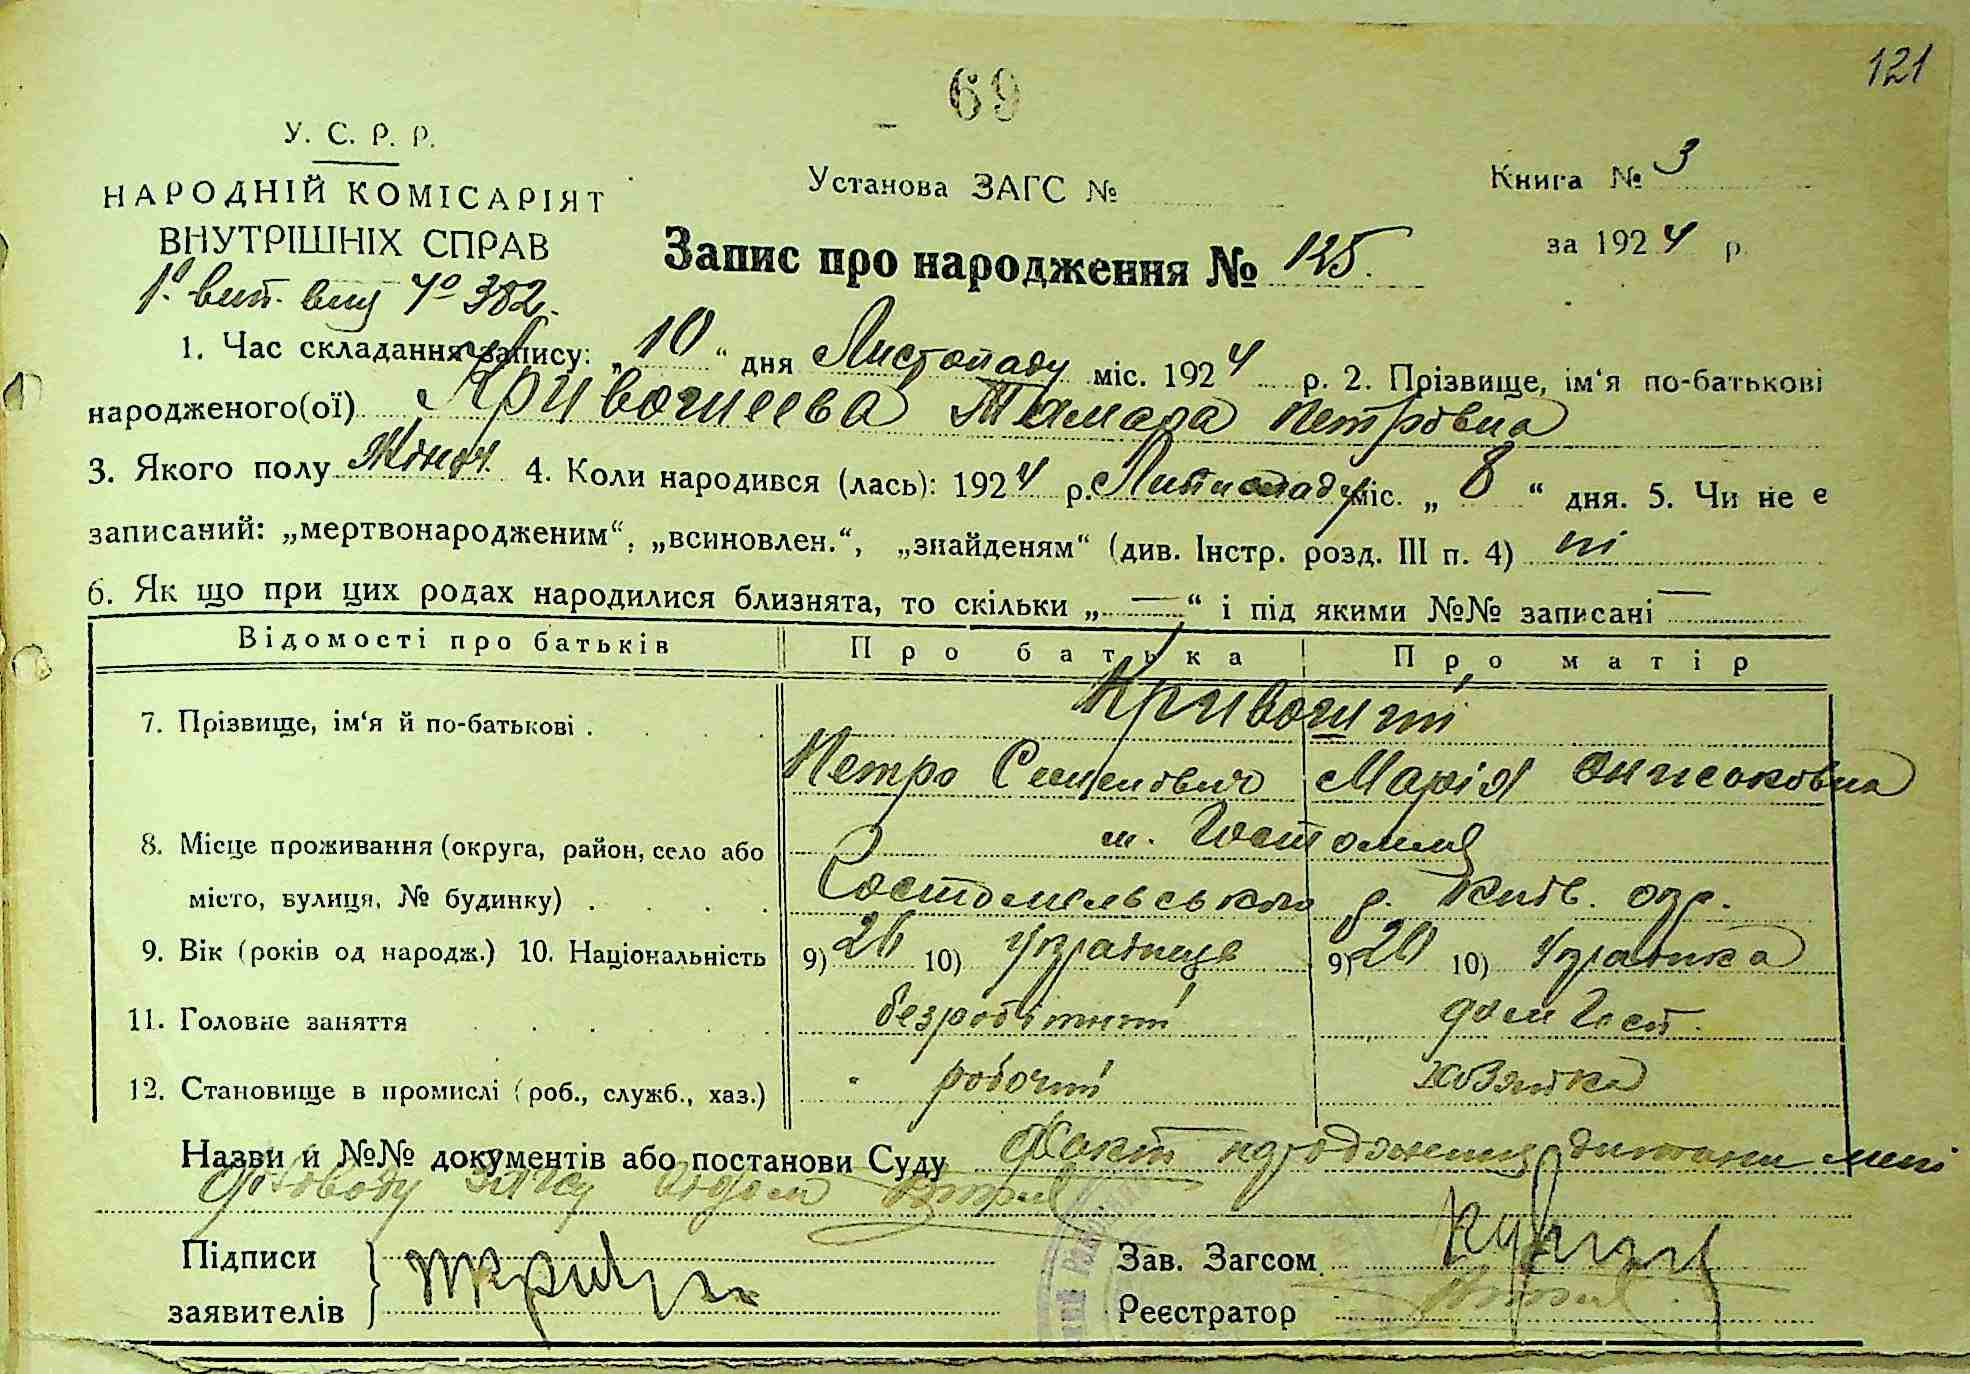 121
69
У. С. Р. Р.
НАРОДНІЙ КОМІСАРІЯТ
ВНУТРІШНІХ СПРАВ
Установа ЗАГС №
Книга № 3
за 1924 р.
Запис про народження № 125.
№ 382.
1. Час складання запису: „10“ дня Листопаду міс. 1924 р. 2. Прізвище, ім‘я по-батькові
народженого(ої) Кривошеева Тамара Петрівна
3. Якого полу Жіноч. 4. Коли народився (лась): 1924 р. Листопаду міс. „ 8 “ дня. 5. Чи не є
записаний: „мертвонародженим“, „всиновлен.“, „знайденям“ (див. Інстр. розд. III п. 4) ні
6. Як що при цих родах народилися близнята, то скільки „—“ і під якими №№ записані —
Відомості про батьків Про батька Про матір
7. Прізвище, ім‘я й по-батькові .
Петро Семенович Марія
8. Місце проживання (округа, район, село або м. Гостомля
місто, вулиця, № будинку) . Гостомельського р. Київ. окр.
9. Вік (років од народж.) 10. Національність 9) 26 10) Українець 9) 20 10) Українка
11. Головне заняття безробітний дом. Госп.
12. Становище в промислі (роб., служб., хаз.) робочий хозяйка
Назви й №№ документів або постанови Суду Факт народження дитини мені
Підписи
заявителів
Зав. Загсом
Реєстратор